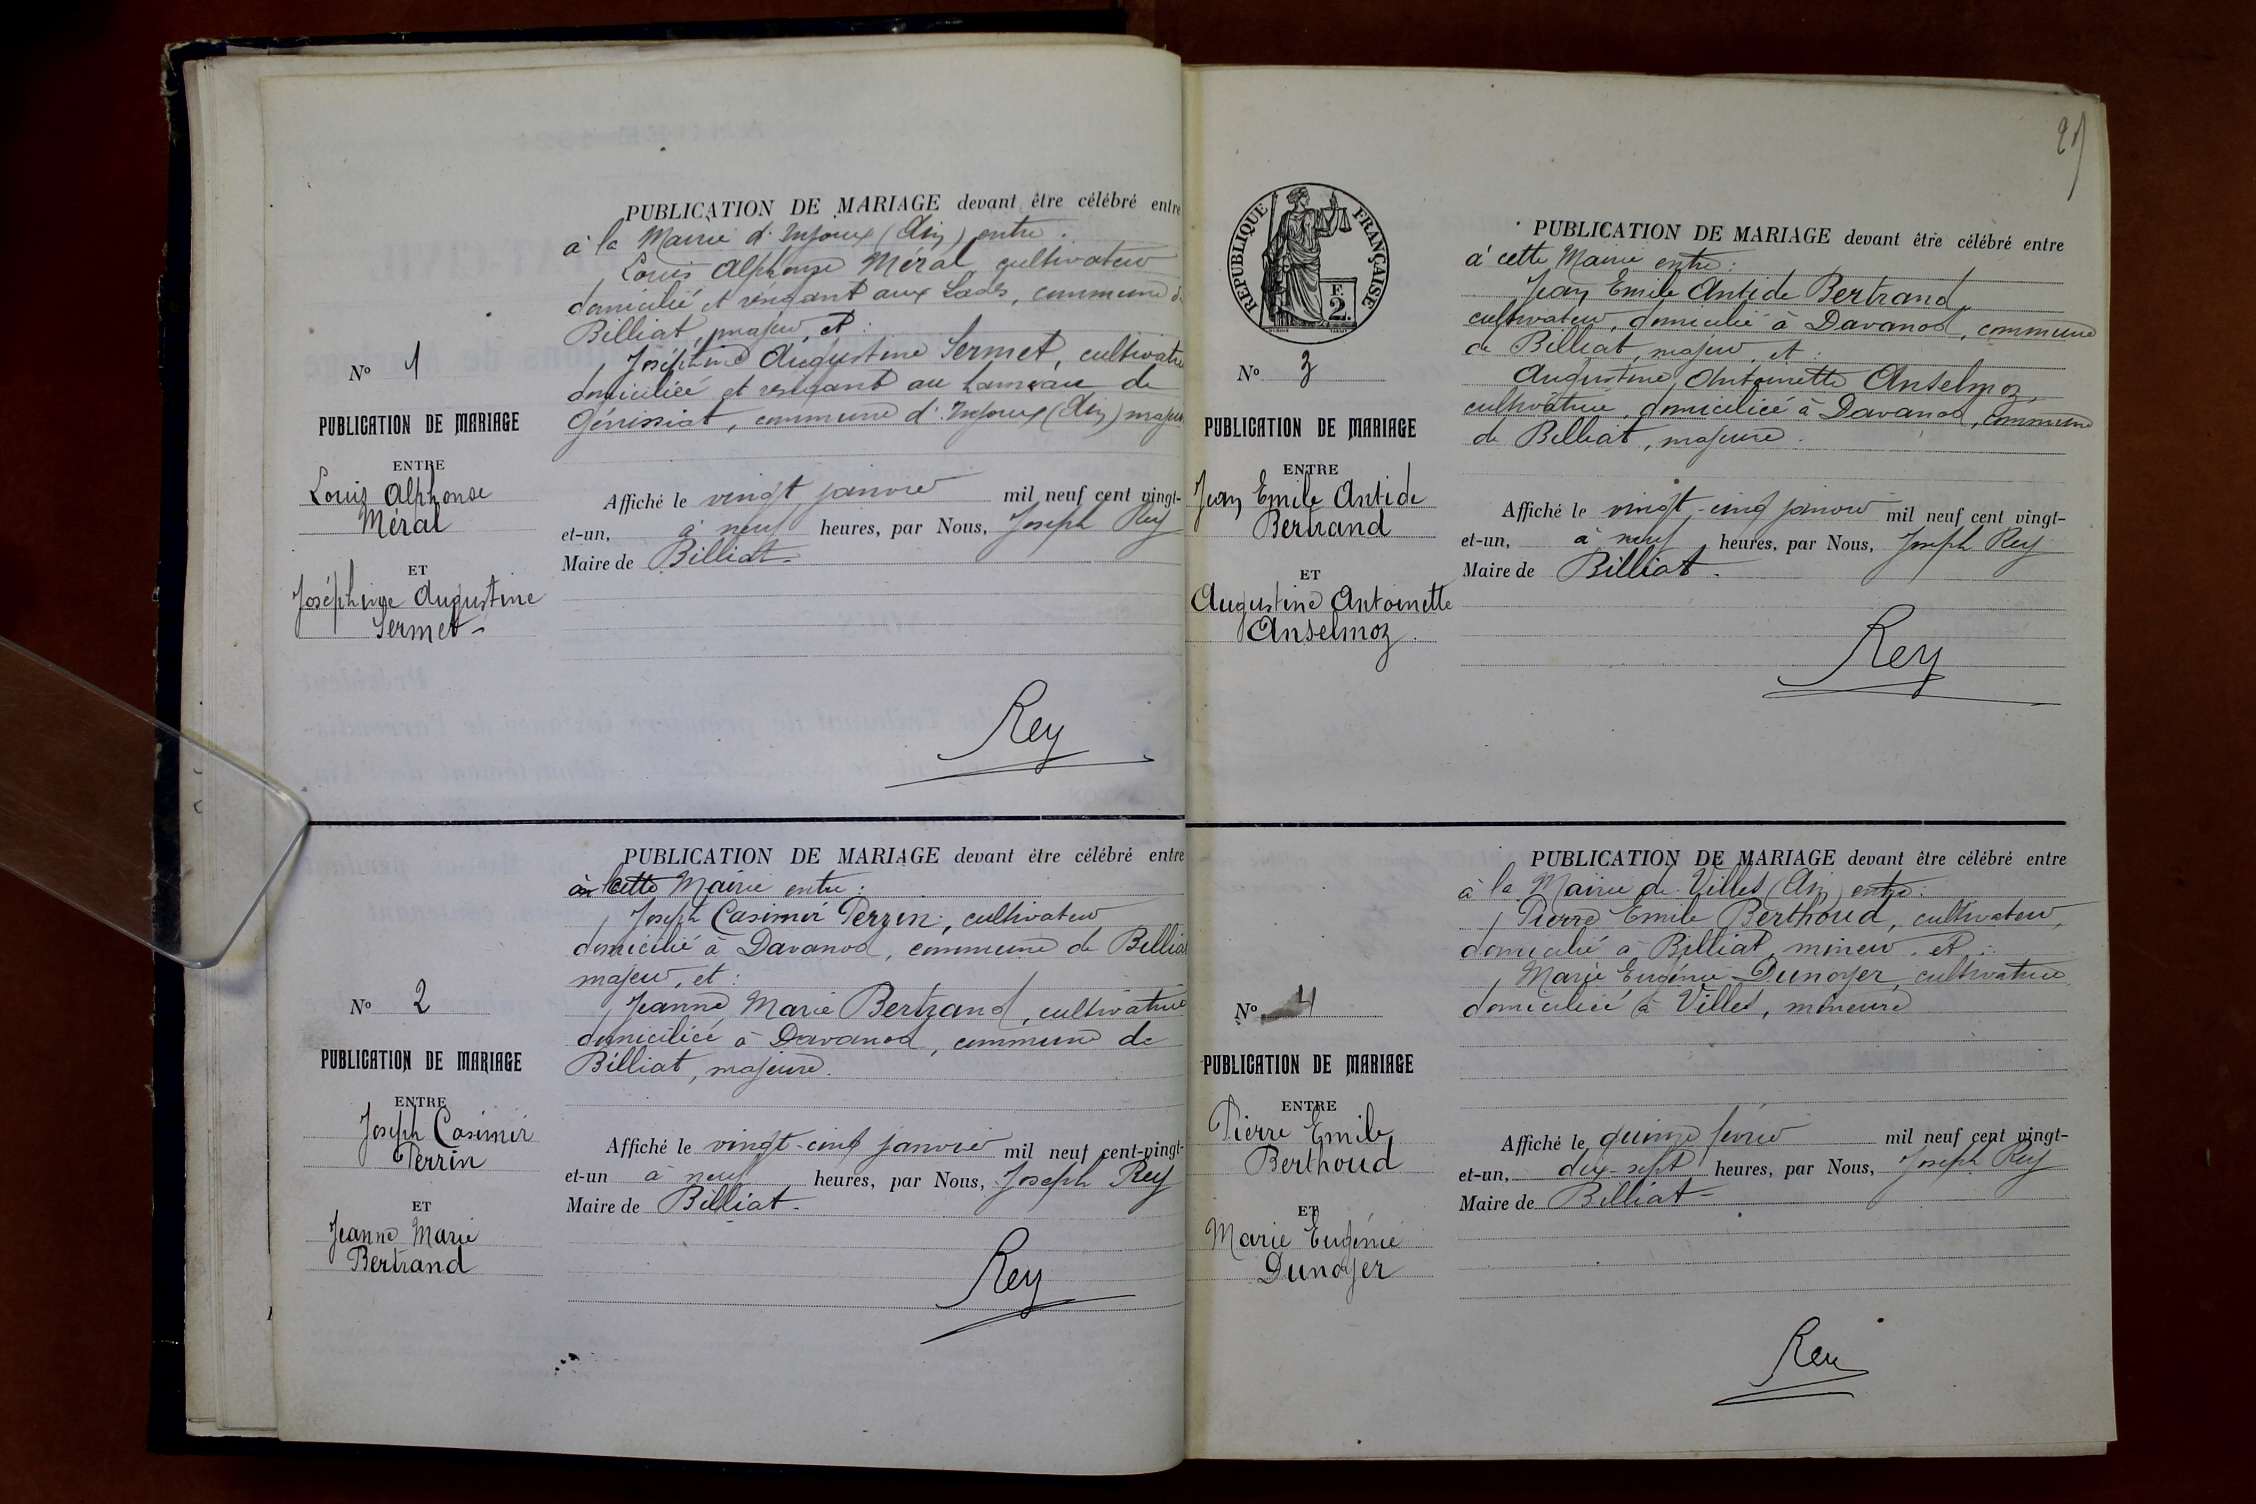 PUBLICATION DE MARIAGE devant être célébré entre
à la Mairie d'Injoux (Ain) entre :
Louis Alphonse Méral cultivateur
domicilié et résidant aux Lades, commune de
Billiat, majeur, et :
Joséphine Augustine Sermet, cultivatrice
domiciliée et résidant au hameau de
Génissiat, commune d'Injoux (Ain) majeure
N° 1
PUBLICATION DE MARIAGE
ENTRE
Louis Alphonse
Méral
ET
Joséphine Augustine
Sermet
Affiché le vingt janvier mil neuf cent vingt-
et-un, à neuf heures, par Nous, Joseph Rey
Maire de Billiat
Rey
PUBLICATION DE MARIAGE devant être célébré entre
cette Mairie entre :
Joseph Casimir Perrin, cultivateur
domicilié à Davanod, commune de Billiat
majeur, et :
Jeanne Marie Bertrand, cultivatrice
domiciliée à Davanod, commune de
Billiat, majeure.
N° 2
PUBLICATION DE MARIAGE
ENTRE
Joseph Casimir
Perrin
ET
Jeanne Marie
Bertrand
Affiché le vingt-cinq janvier mil neuf cent-vingt-
et-un à neuf heures, par Nous, Joseph Rey
Maire de Billiat.
Rey
RÉPUBLIQUE FRANÇAISE
F.
2.
PUBLICATION DE MARIAGE devant être célébré entre
à cette Mairie entre :
Jean Emile Antide Bertrand,
cultivateur, domicilié à Davanod, commune
de Billiat, majeur, et :
Augustine Antoinette Anselmoz,
cultivatrice, domiciliée à Davanod, commune
de Billiat, majeure.
N° 3
PUBLICATION DE MARIAGE
ENTRE
Jean Emile Antide
Bertrand
ET
Augustine Antoinette
Anselmoz.
Affiché le vingt-cinq janvier mil neuf cent vingt-
et-un, à neuf heures, par Nous, Joseph Rey
Maire de Billiat.
Rey
PUBLICATION DE MARIAGE devant être célébré entre
à la Mairie de Villes (Ain) entre :
Pierre Emile Berthoud, cultivateur,
domicilié à Billiat, mineur, et :
Marie Eugénie Dunoyer, cultivatrice
domiciliée à Villes, mineure
N° 4
PUBLICATION DE MARIAGE
ENTRE
Pierre Emile
Berthoud
ET
Marie Eugénie
Dunoyer
Affiché le quinze février mil neuf cent vingt-
et-un, dix-sept heures, par Nous, Joseph Rey
Maire de Billiat
Rey